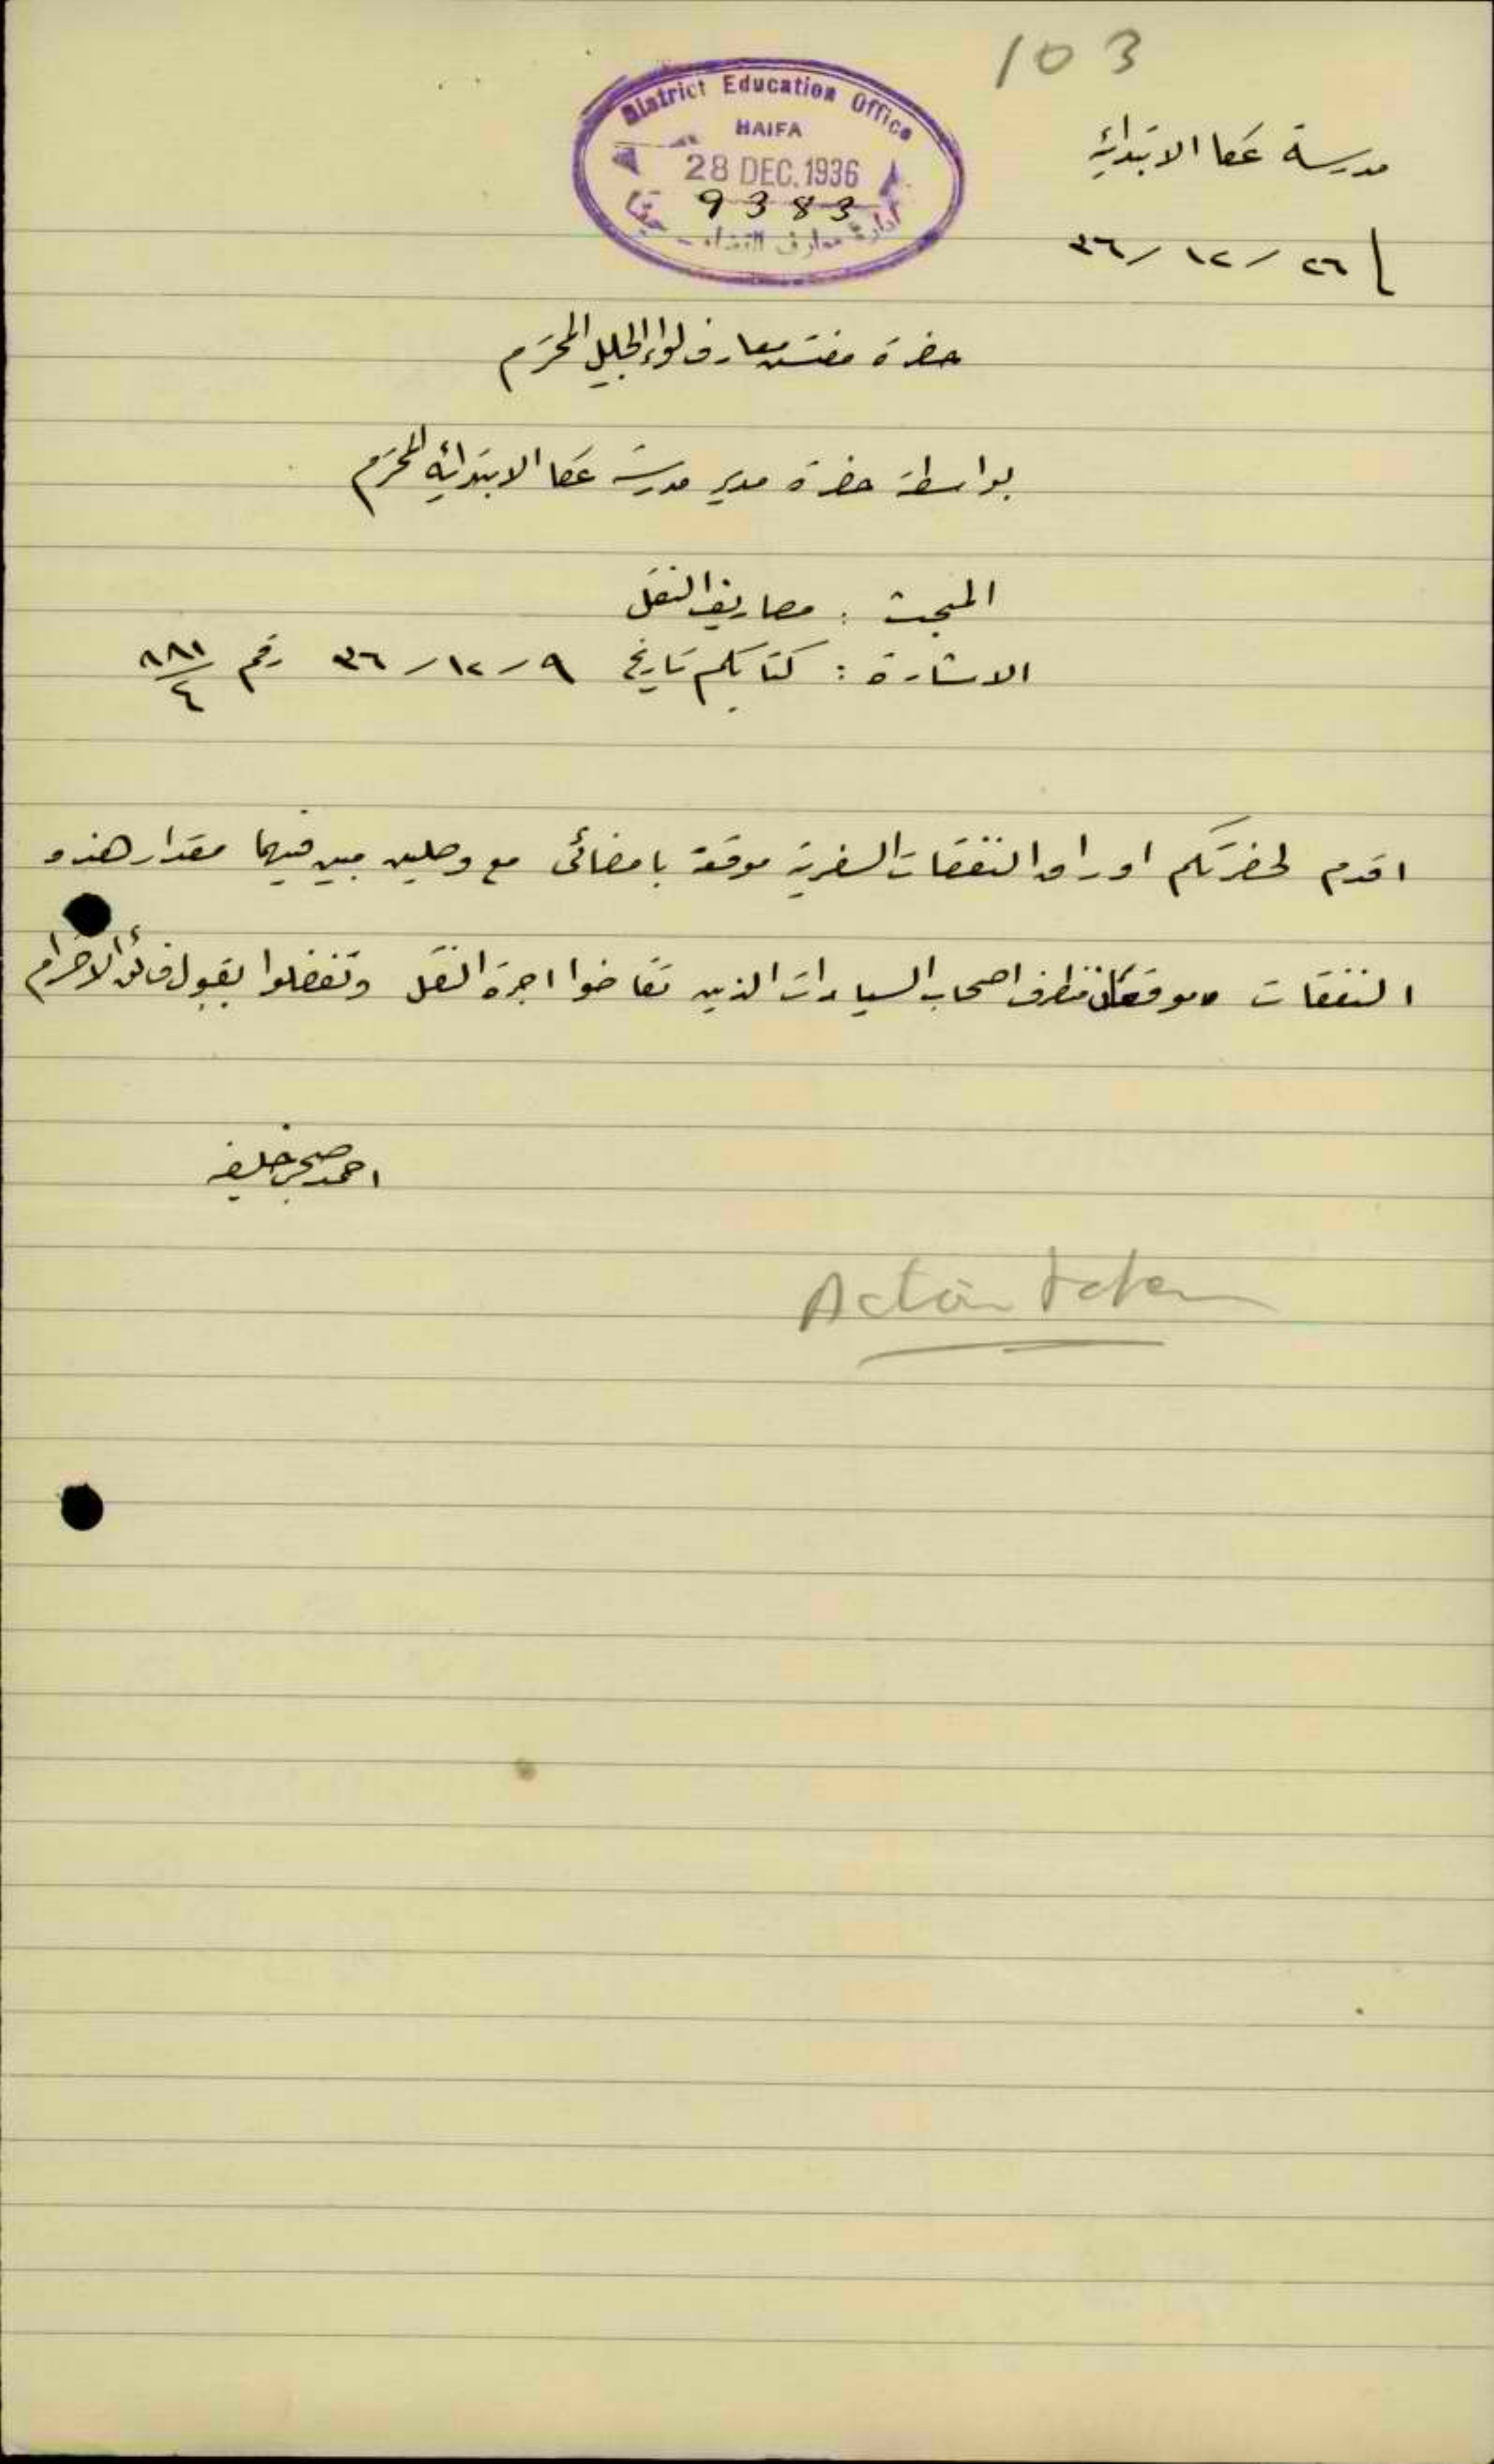 103
District Education Office
HAIFA
28 DEC. 1936
9383
ادارة معارف القضاء - حيفا
مدرسة عكا الابتدائية
٢٦ / ١٢ / ٣٦
حضرة مفتش معارف لواء الجليل المحترم
بواسطة حضرة مدير مدرسة عكا الابتدائية المحترم
المبحث : مصاريف النقل
الاشارة : كتابكم تاريخ ٩ - ١٢ - ٣٦ رقم ٨٨١/٤
اقدم لحضرتكم اوراق النفقات السفرية موقعة بامضائى مع وصلين مبين فيهما مقدار هذه
النفقات وموقعان من طرف اصحاب السيارات الذين تقاضوا اجرة النقل وتفضلوا بقبول فائق الاحترام
احمد صبحي خليفه
Action taken